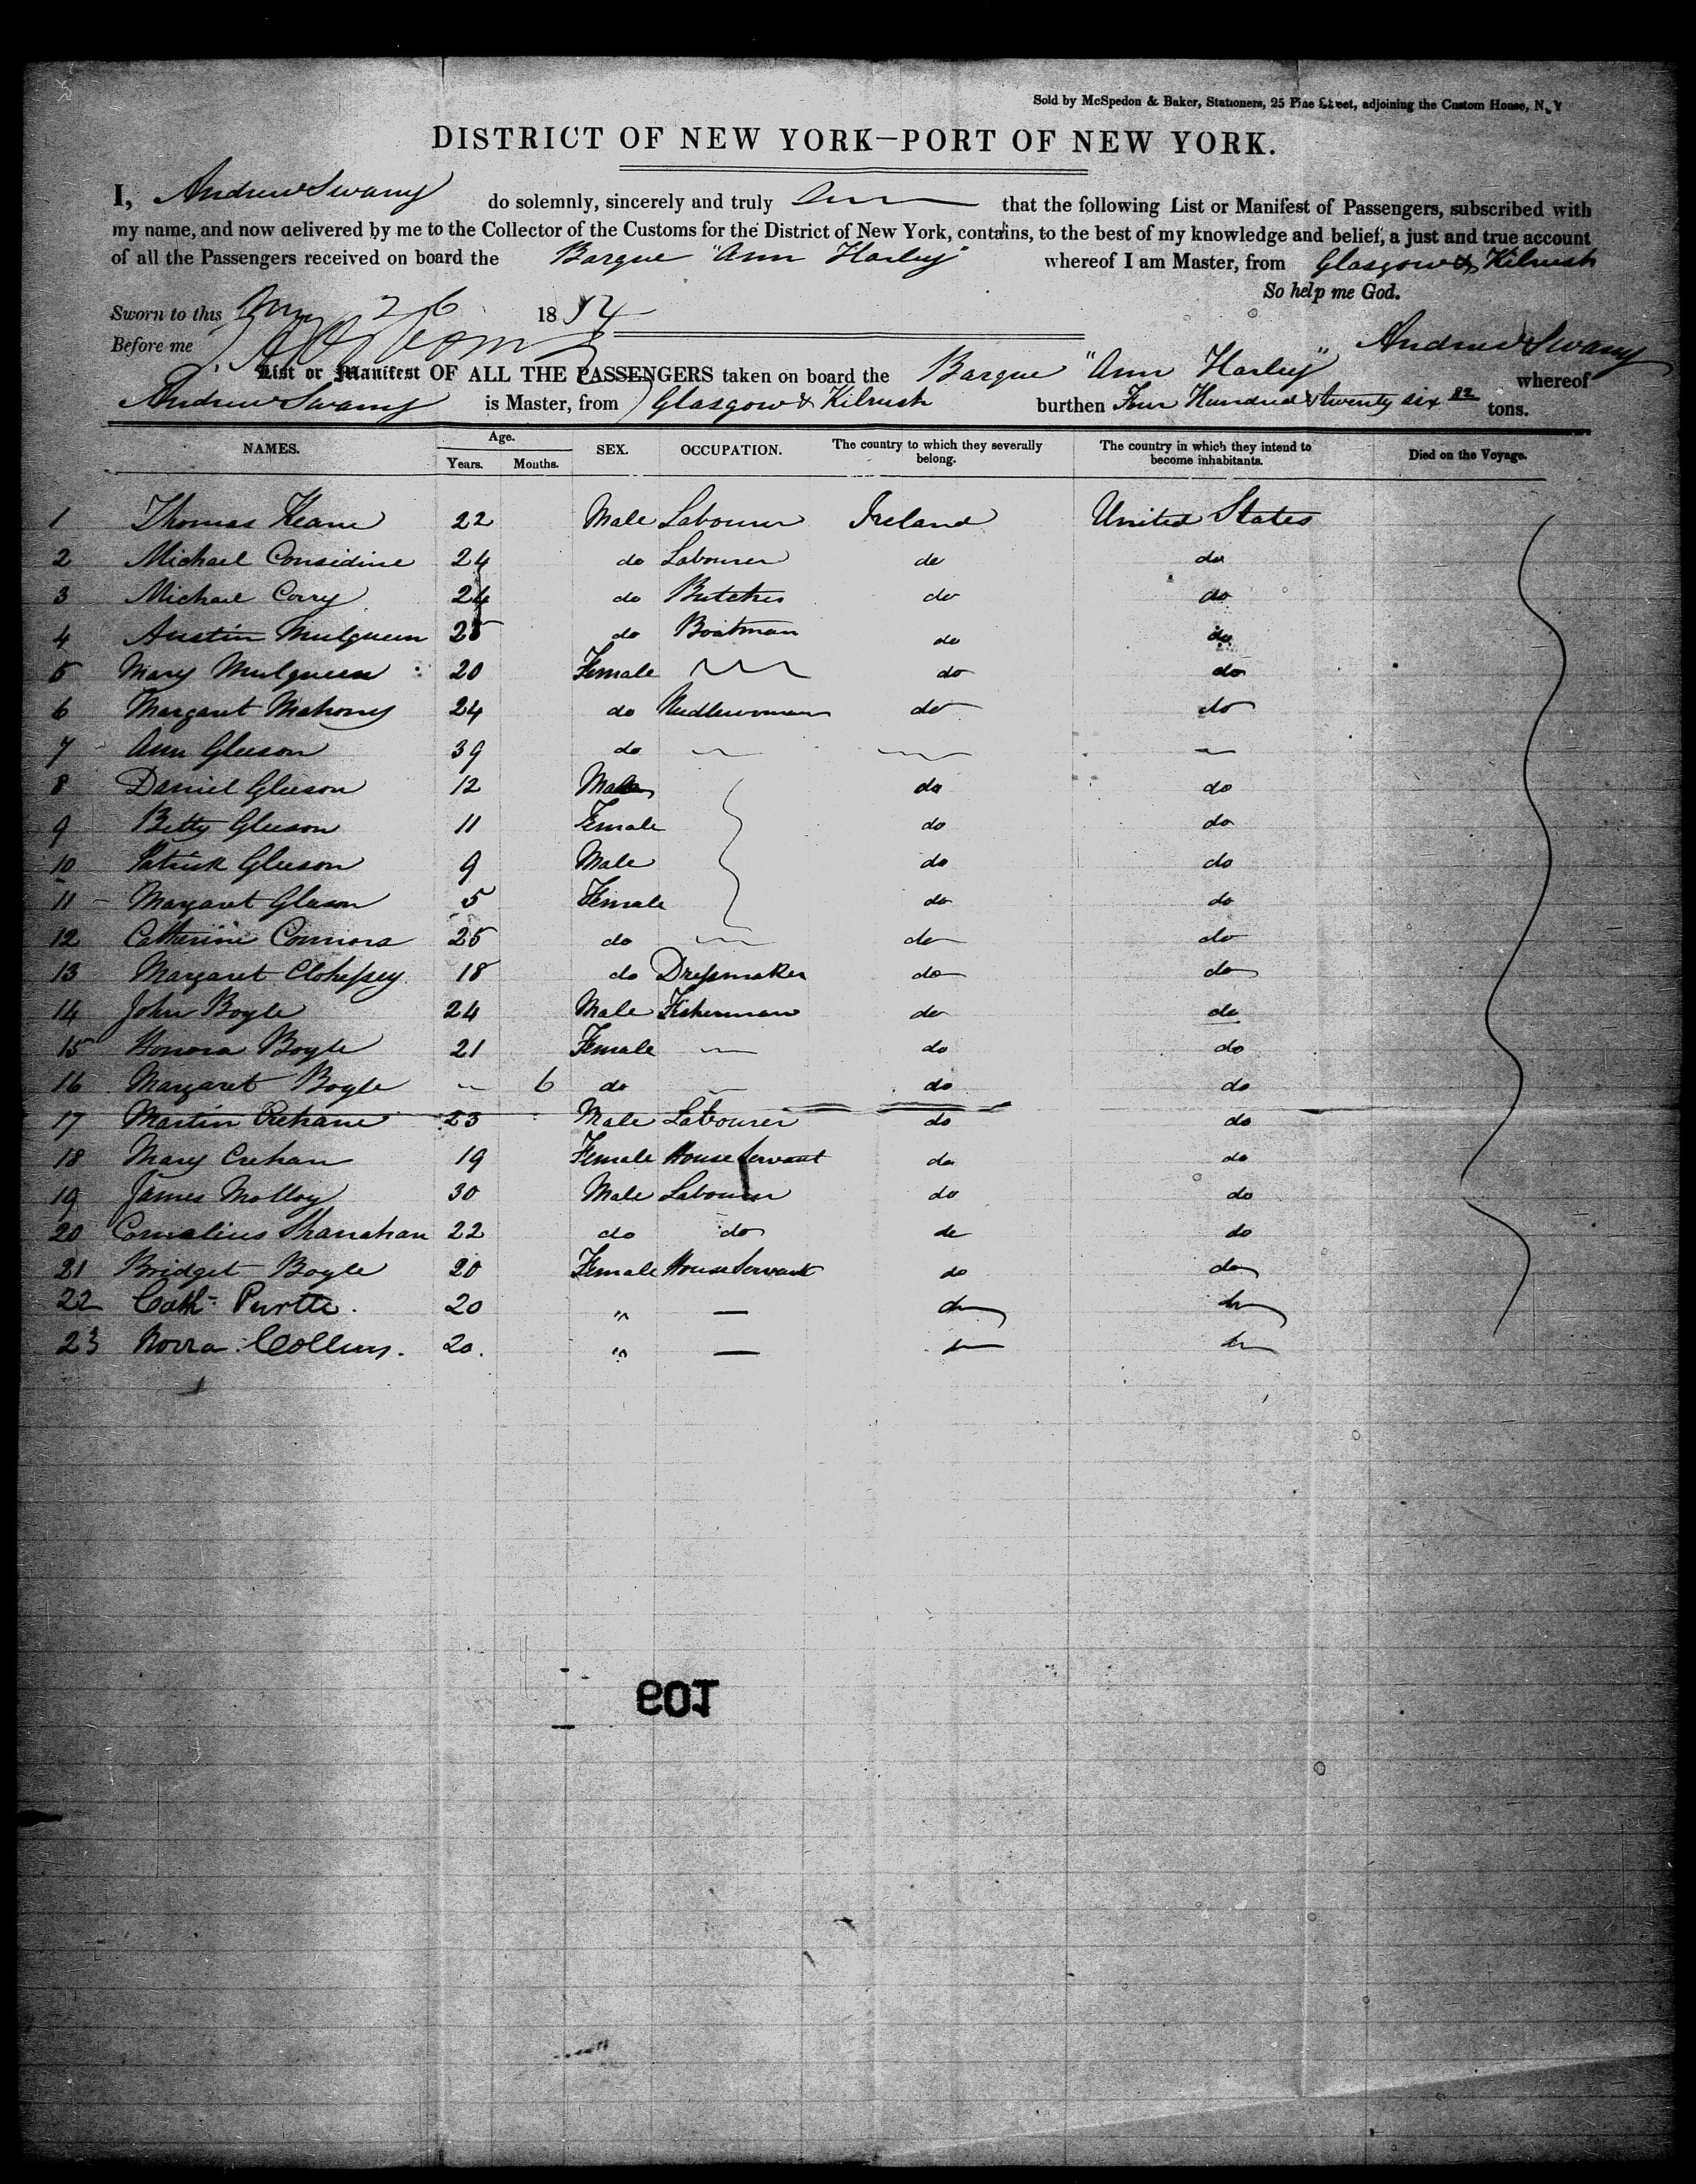 Sold by McSpedon & Baker, Stationers, 25 Pine Street, adjoining the Custom House, N.Y
DISTRICT OF NEW YORK—PORT OF NEW YORK.
I, Andrew Swany do solemnly, sincerely and truly that the following List or Manifest of Passengers, subscribed with
my name, and now delivered by me to the Collector of the Customs for the District of New York, contains, to the best of my knowledge and belief, a just and true account
of all the Passengers received on board the Barque "Ann Harley" whereof I am Master, from Glasgow & Kilrush
So help me God.
Sworn to this 26 1854
Before me
Andrew Swany
List or Manifest OF ALL THE PASSENGERS taken on board the Barque "Ann Harley" whereof
Andrew Swany is Master, from Glasgow & Kilrush burthen Four Hundred & twenty six 82 tons.
NAMES. Age. Years. Months. SEX. OCCUPATION. The country to which they severally belong. The country in which they intend to become inhabitants. Died on the Voyage.
1 Thomas Keane 22 Male Labourer Ireland United States
2 Michael Considine 24 do Labourer do do
3 Michael Corry 24 do Butcher do do
4 Austin Mulqueen 25 do Boatman do do
5 Mary Mulqueen 20 Female do do
6 Margaret Mahony 24 do Needlewoman do do
7 Ann Gleeson 39 do
8 Daniel Gleeson 12 Male do do
9 Betty Gleeson 11 Female do do
10 Patrick Gleeson 9 Male do do
11 Margaret Gleeson 5 Female do do
12 Catherine Connors 25 do do do
13 Margaret Clohessey 18 do Dressmaker do do
14 John Boyle 24 Male Fisherman do do
15 Honora Boyle 21 Female do do
16 Margaret Boyle 6 do do do
17 Martin Crehane 23 Male Labourer do do
18 Mary Crehan 19 Female House Servant do do
19 James Molloy 30 Male Labourer do do
20 Cornelius Shanahan 22 do do do do
21 Bridget Boyle 20 Female House Servant do do
22 Cath: Purtle. 20 " — do do
23 Norra Collins. 20. " — do do
109